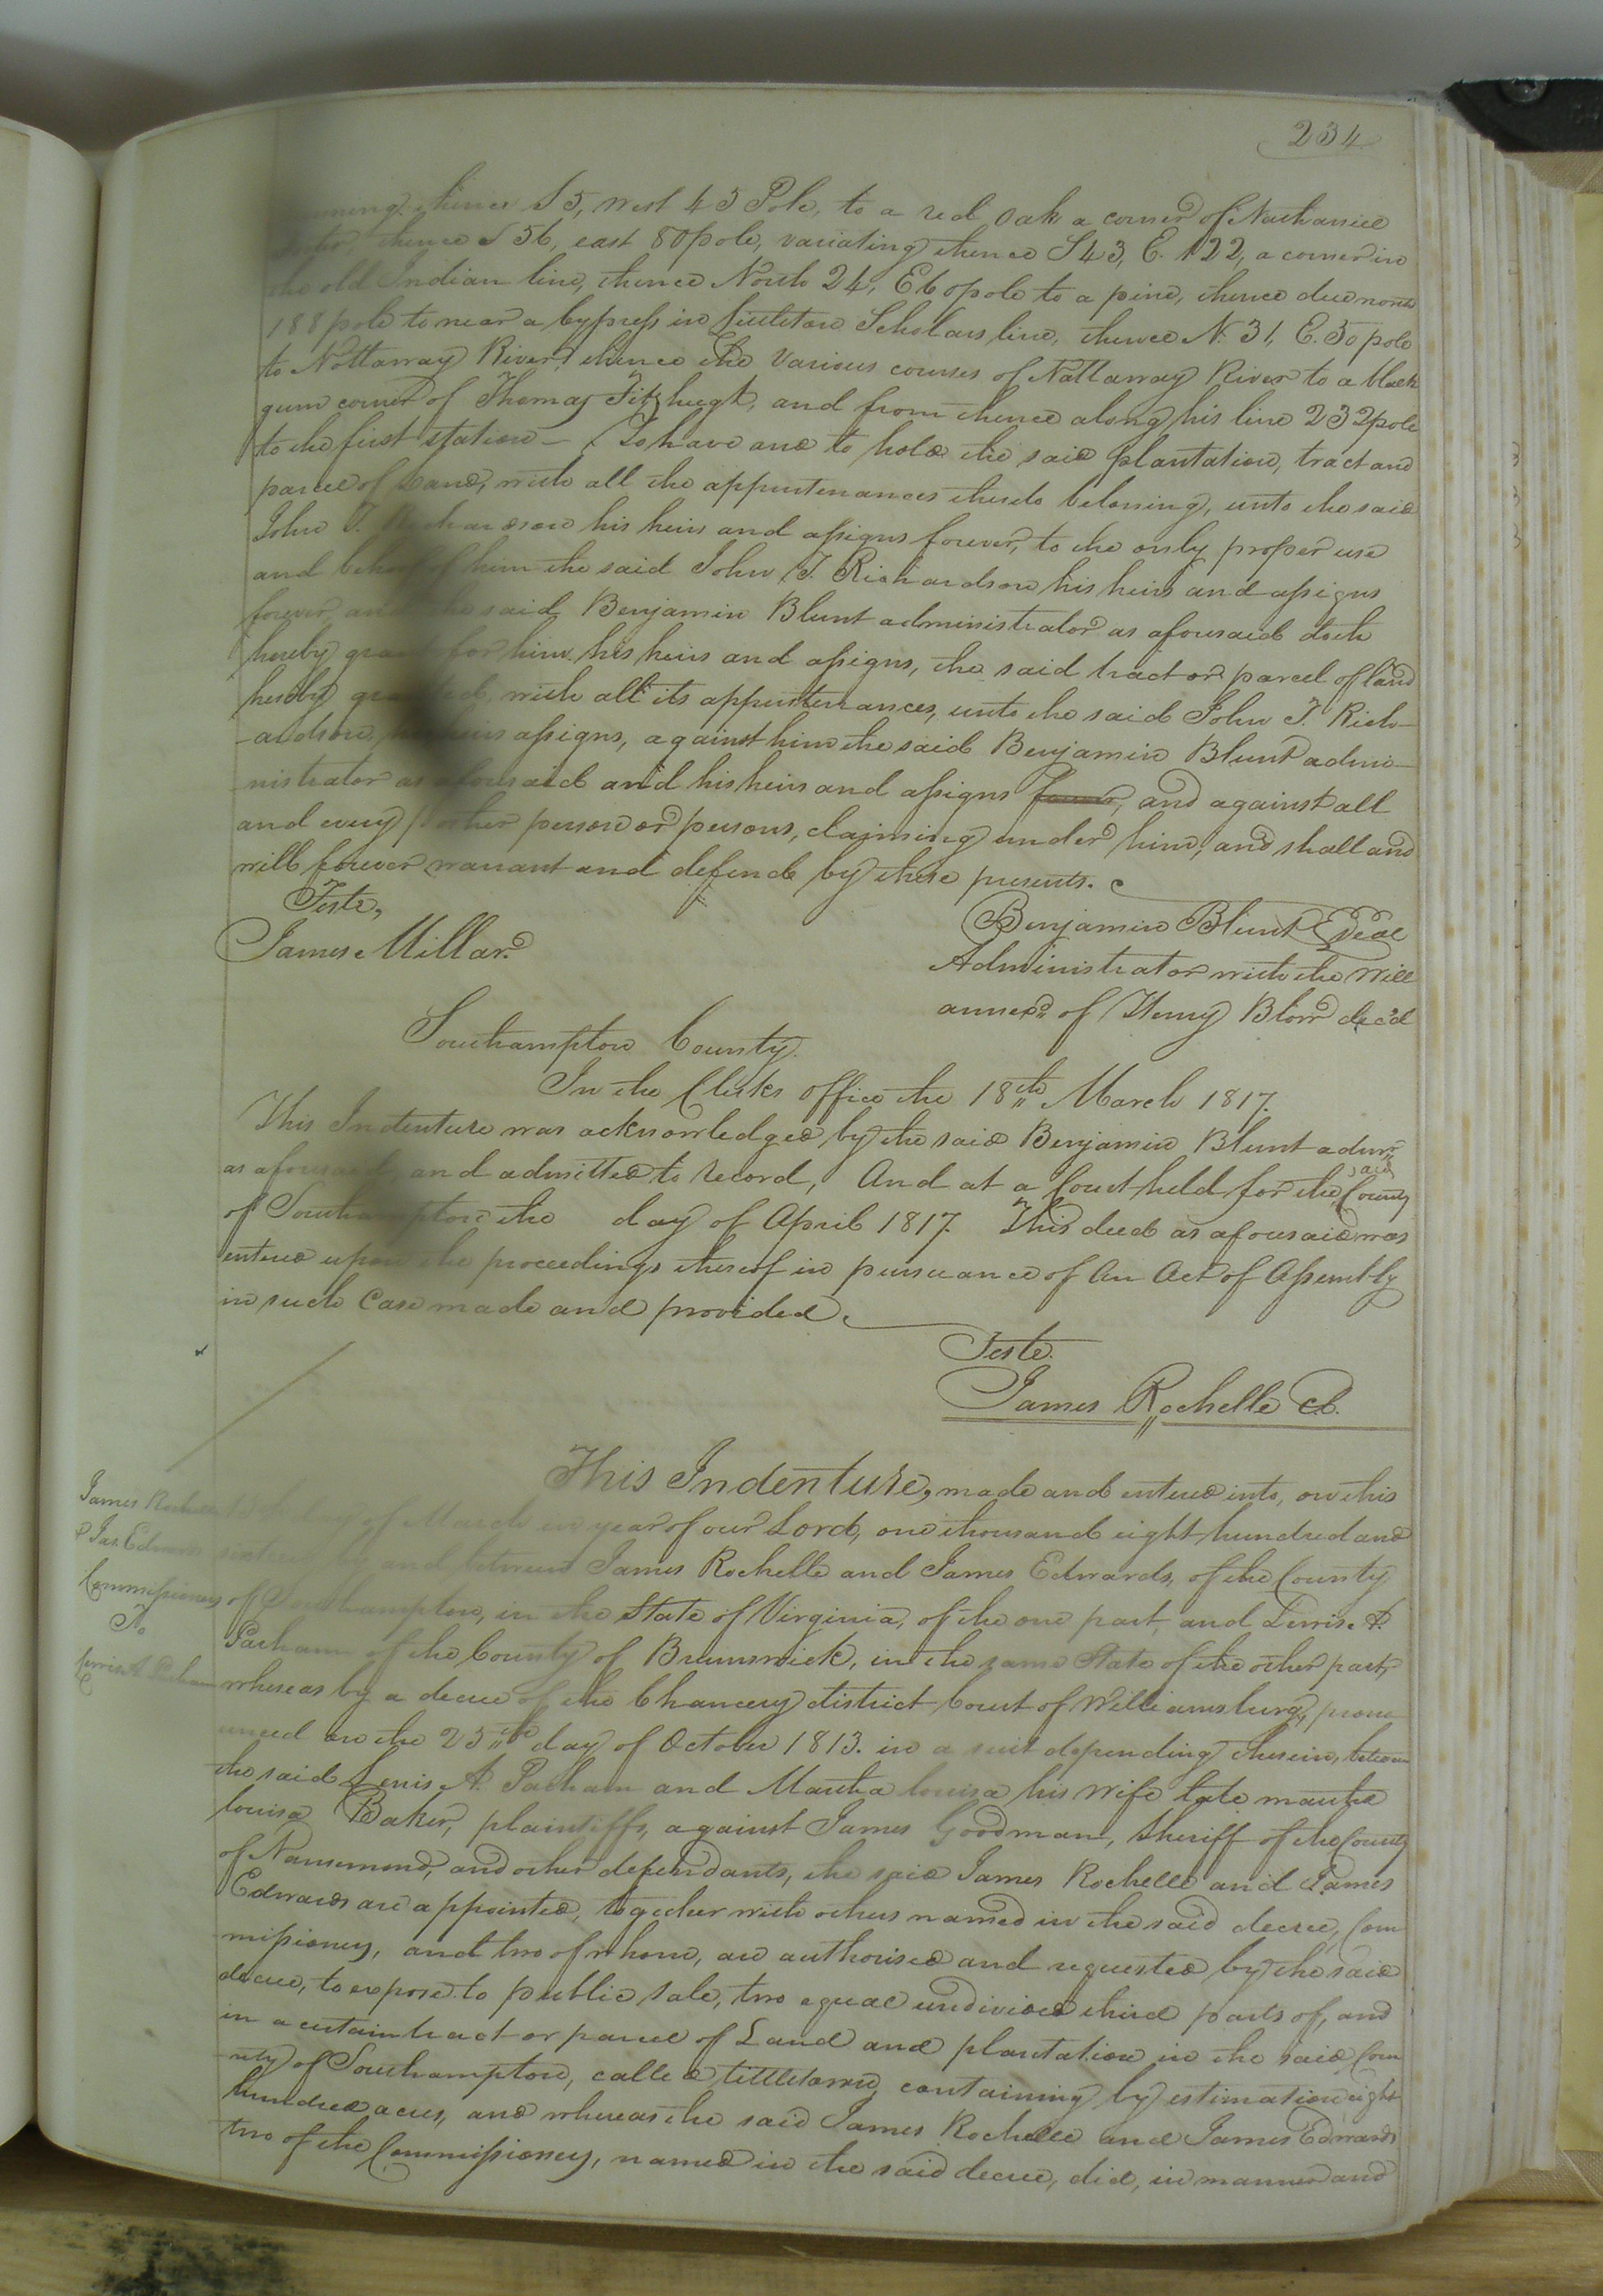 234
thence S 5, west 45 Pole, to a red Oak a corner of Nathaniel
thence S 56, east 80 pole, variating thence S 43, E. 122, a corner in
the old Indian line, thence North 24, E 60 pole to a pine, thence due north
188 pole to near a Cypress in Littleton Scholars line, thence N. 31, E. 50 pole
to Nottaway River, thence the various courses of Nattaway River to a black
gum corner of Thomas Fitzhugh, and from thence along his line 232 pole
to the first station — To have and to hold the said plantation, tract and
parcel of Land, with all the appurtenances thereto beloning, unto the said
John T. Richardson his heirs and assigns forever, to the only proper use
and behoof of him the said John T. Richardson his heirs and assigns
forever, and the said Benjamin Blunt administrator as aforesaid doth
hereby grant for him his heirs and assigns, the said tract or parcel of land
hereby granted, with all its appurtenances, unto the said John T. Rich-
-ardson, his heirs assigns, against him the said Benjamin Blunt admi-
-nistrator as aforesaid and his heirs and assigns forever, and against all
and every other person or persons, claiming under him, and shall and
will forever warrant and defend by these presents.
Teste,
James Millar
Benjamin Blunt Seal
Administrator with the Will
annexd. of Henry Blow dec'd
Southampton County.
In the Clerks office the 18th March 1817.
This Indenture was acknowledged by the said Benjamin Blunt admr.
as aforesaid, and admitted to record, And at a Court held for the said County
of Southampton the day of April 1817. This deed as aforesaid was
entered upon the proceedings thereof in pursuance of An Act of Assembly
in such Case made and provided.
Teste.
James Rochelle C.
James Rochelle
& Jas. Edwards
Commissioners
To
Lewis A Parham
This Indenture, made and entered into, on this
day of March in year of our Lord, one thousand eight hundred and
by and between James Rochelle and James Edwards, of the County
of Southampton, in the State of Virginia, of the one part, and Lewis A.
Parham of the County of Brunswick, in the same State of the other part,
whereas by a decree of the Chancery district Court of Williamsburg, prono
unced on the 25th day of October 1813. in a suit depending therein, between
the said Lewis A. Parham and Martha louisa his wife late martha
louisa Baker, plaintiffs, against James Goodman, Sheriff of the County
of Nansemond, and other defendants, the said James Rochelle and James
Edwards are appointed, together with others named in the said decree, Com
missioners, and two of whom, are authorised and requested by the said
decree, to expose to public sale, two equal undivided third parts of, and
in a certain tract or parcel of Land and plantation in the said Cou
-nty of Southampton, called tittletown, containing by estimation eight
hundred acres, and whereas the said James Rochelle and James Edwards
two of the Commissioners, named in the said decree, did, in manner and